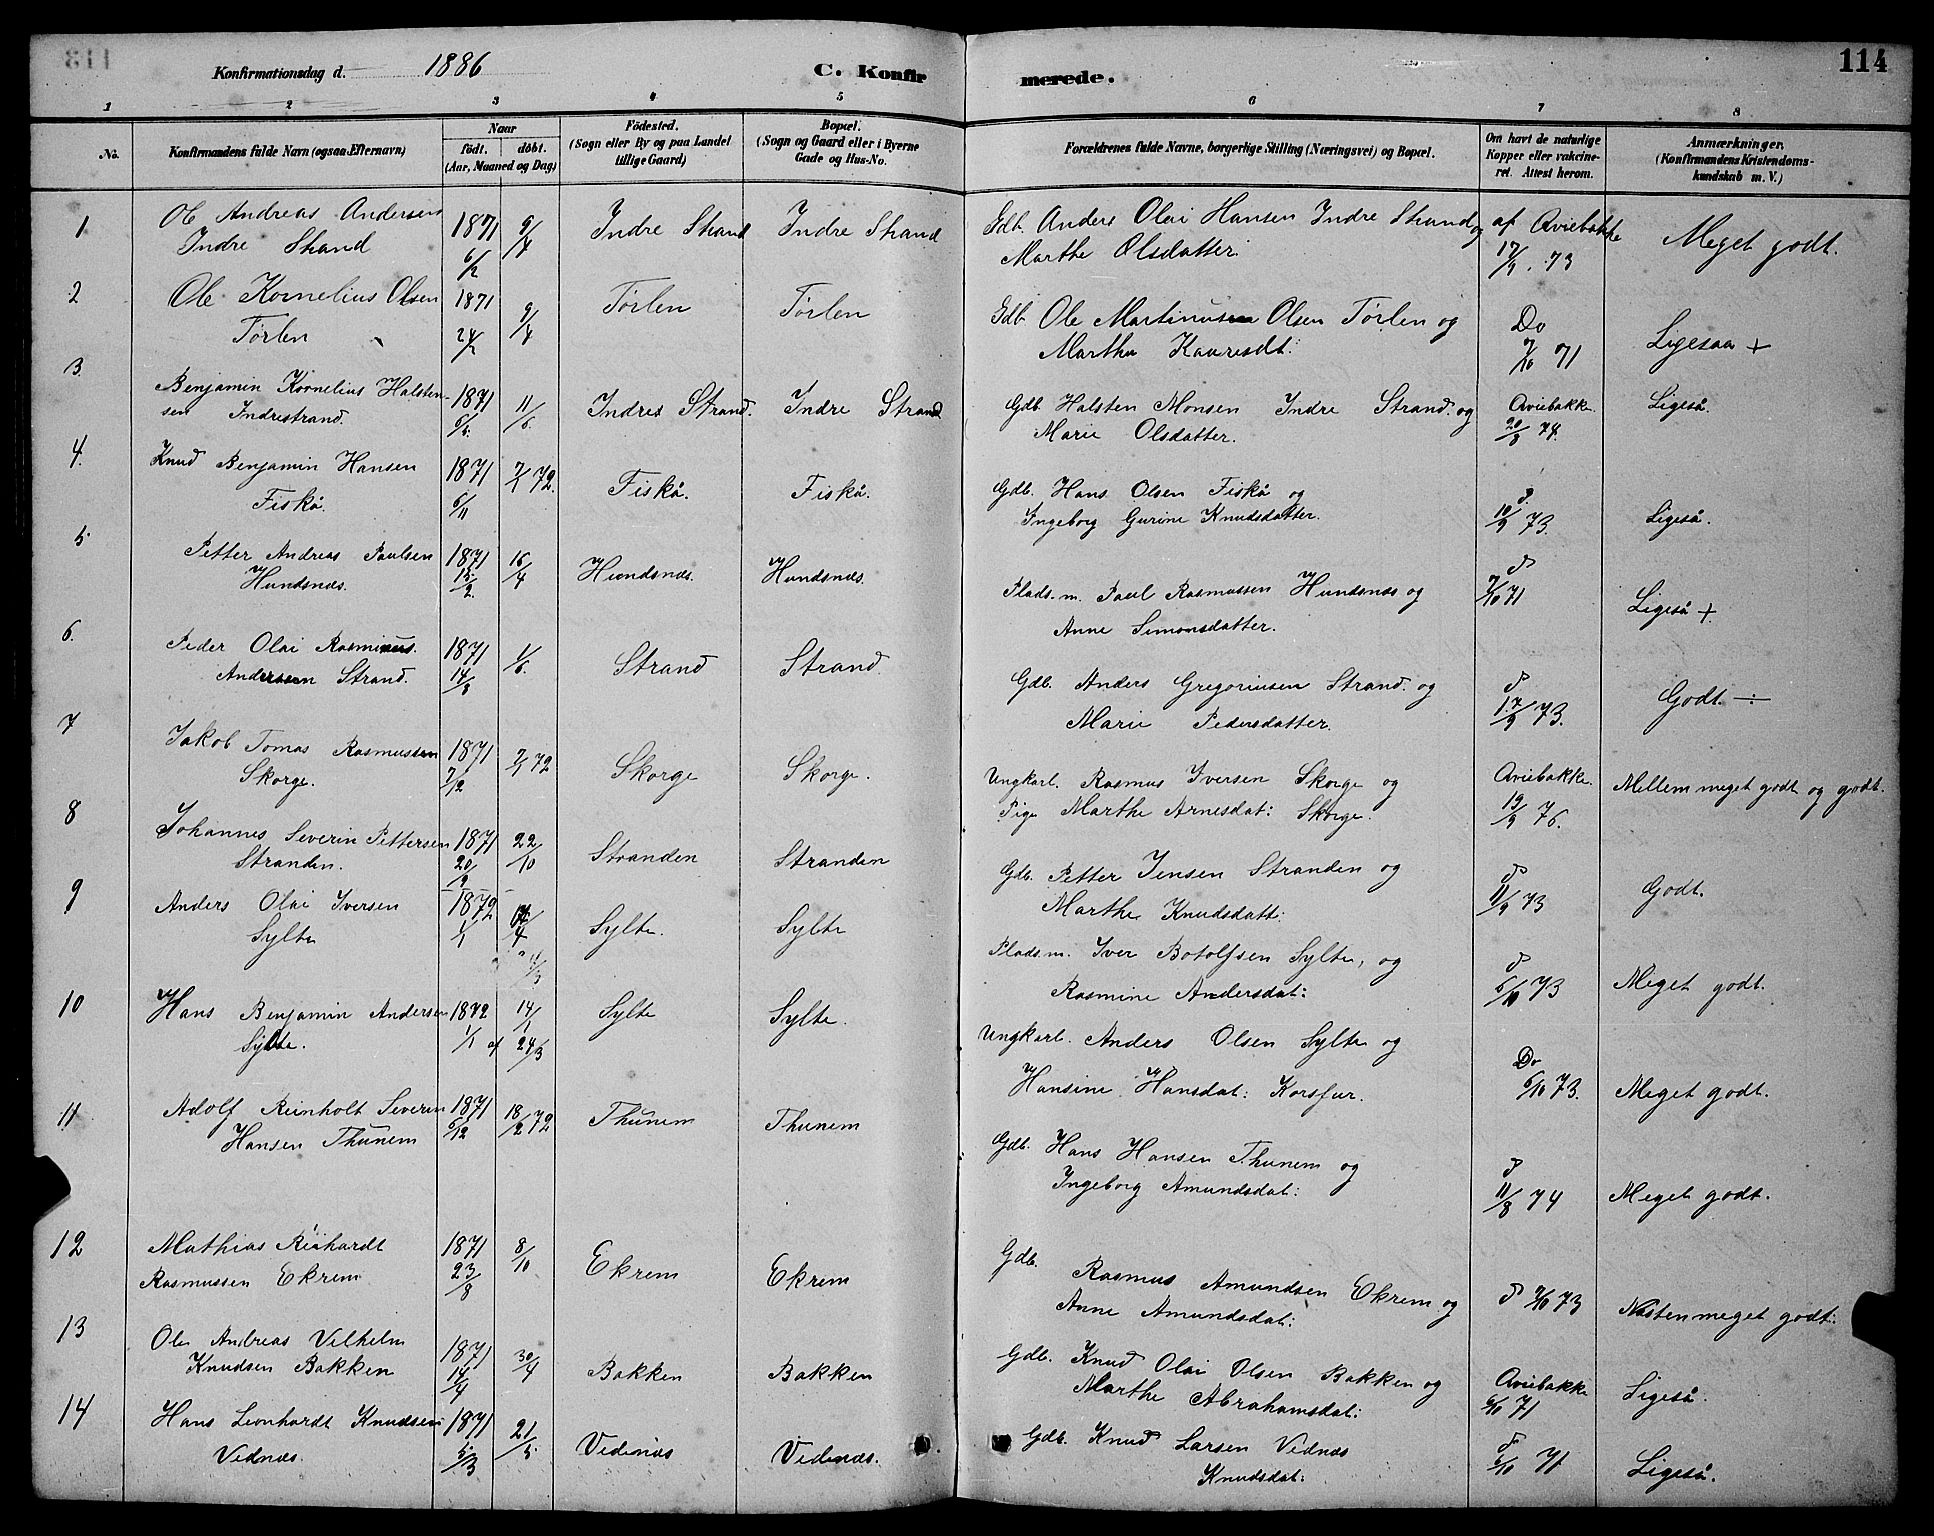 Konfirmationsdag d. 1886 C. Konfirmerede. 114
1 2 3 4 5 6 7 8
No. Konfirmandens fulde Navn (ogsaa Efternavn) Naar födt. döbt. (Aar, Maaned og Dag) Födested. (Sogn eller By og paa Landet tillige Gaard) Bopæl. (Sogn og Gaard eller i Byerne Gade og Hus-No. Forældrenes fulde Navne, borgerlige Stilling (Næringsvei) og Bopæl. Om havt de naturlige Kopper eller vakcineret. Attest herom. Anmærkninger. (Konfirmandens Kristendomskundskab m. V.)
1 Ole Andreas Andersen 1871 9/4 Indre Strand Indre Strand Gdb. Anders Olai Hansen Indre Strand og af Aviebakke Meget godt.
Indre Strand 6/2 Marthe Olsdatter 17/9 73
2 Ole Kornelius Olsen 1871 9/4 Tørlen Tørlen Gdb. Ole Martinus Olsen Tørlen og Do Ligesaa +
Tørlen 24/2 Martha Kauresdt: 7/10 71
3. Benjamin Kornelius Halsten- 1871 11/6 Indres Strand. Indre Strand Gdb. Halsten Monsen Indre Strand. og Aviebakke Ligeså.
sen Indrestrand. 6/5. Marie Olsdatter. 20/8 74.
4. Knud Benjamin Hansen 1871 7/1 72. Fiskå. Fiskå. Gdb. Hans Olsen Fiskå og Ligeså.
Fiskå. 6/11 Ingeborg Gurine Knudsdatter. 10/9 73.
5. Petter Andreas Paulsen 1871 16/4 Hundsnæs. Hundsnæs. Plads.m. Paul Rasmussen Hundsnæs og 7/10 71 Ligeså +.
Hundsnæs. 15/2. Anne Simonsdatter.
6. Peder Olai Rasminus. 1871 1/6. Strand Strand. Gdb. Anders Gregoriusen Strand. og 17/9 73. Godt. ÷
Andersen Strand. 14/3 Marie Pedersdatter.
7 Jakob Tomas Rasmussen 1871 7/1 72 Skorge Skorge. Ungkarl. Rasmus Iversen Skorge og Aviebakke Mellem meget godt og godt.
Skorge. 7/12 Pige Marthe Arnesdat: Skorge. 19/9 76.
8 Johannes Severin Pettersen 1871 22/10 Stranden Stranden Gdb. Petter Jensen Stranden og 11/9 73 Godt.
Stranden. 20/9 Marthe Knudsdatt:
9 Anders Olai Iversen 1872 Sylte. Sylte Plads.m. Iver Botolfsen Sylte, og 6/10 73 Meget godt.
Sylte 1/1 Rasmine Andersdat:
10 Hans Benjamin Andersen 1872 14/1 Sylte Sylte. Ungkarl. Anders Olsen Sylte og Do Meget godt.
Sylte. 1/1 af 24/3 Hansine Hansdat: Korsfur. 6/10 73.
11 Adolf Reinholt Severin 1871 18/2 72 Thunem Thunem Gdb. Hans Hansen Thunem og 11/8 74 Meget godt.
Hansen Thunem 6/12 Ingeborg Amundsdat:
12 Mathias Reinhardt 1871 8/10 Ekrem Ekrem Gdb. Rasmus Amundsen Ekrem og 7/10 73 Næsten meget godt.
Rasmussen Ekrem 23/8 Anne Amundsdat:
13 Ole Andreas Vilhelm 1871 30/4 Bakken Bakken Gdb. Knud Olai Olsen Bakken og Aviebakke Ligeså.
Knudsen Bakken 14/4 Marthe Abrahamsdat: 6/10 71
14 Hans Leonhardt Knudsen 1871 21/5 Vidnæs Vidnæs. Gdb. Knud Larsen Vidnæs 6/10 71 Ligeså.
Vidnæs. 5/3 Knudsdat: